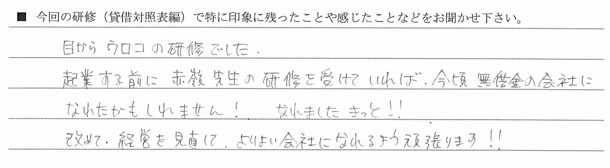 ■ 今回の研修（貸借対照表編）で特に印象に残ったことや感じたことなどをお聞かせ下さい。
目からウロコの研修でした.
起業する前に 赤嶺先生の研修を受けていれば、今頃 無借金の会社に
なれたかもしれません！ なれました きっと！！
改めて、経営を見直して、よりよい会社になれるよう頑張ります！！